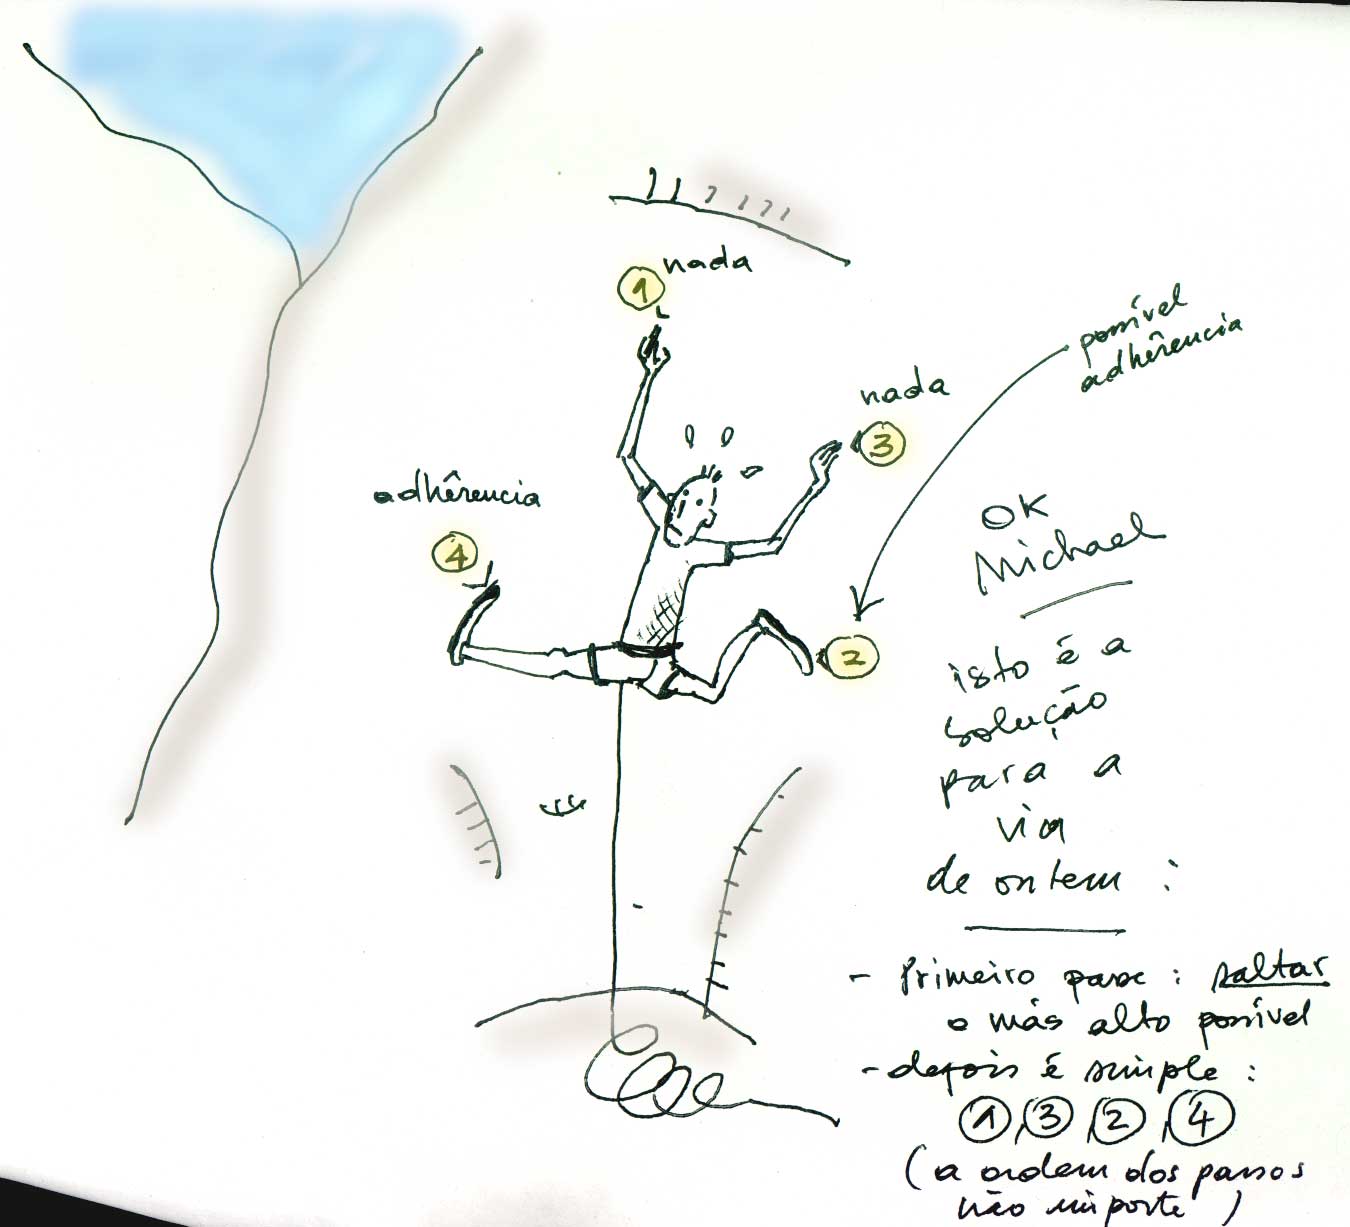 nada
1
possível
adhêrencia
nada
3
adhêrencia
4
2
OK
Michael
isto é a
solução
para a
via
de ontem :
- Primeiro passo : saltar
o más alto possível
- depois é simple :
1, 3, 2, 4
(a ordem dos passos
não importe)